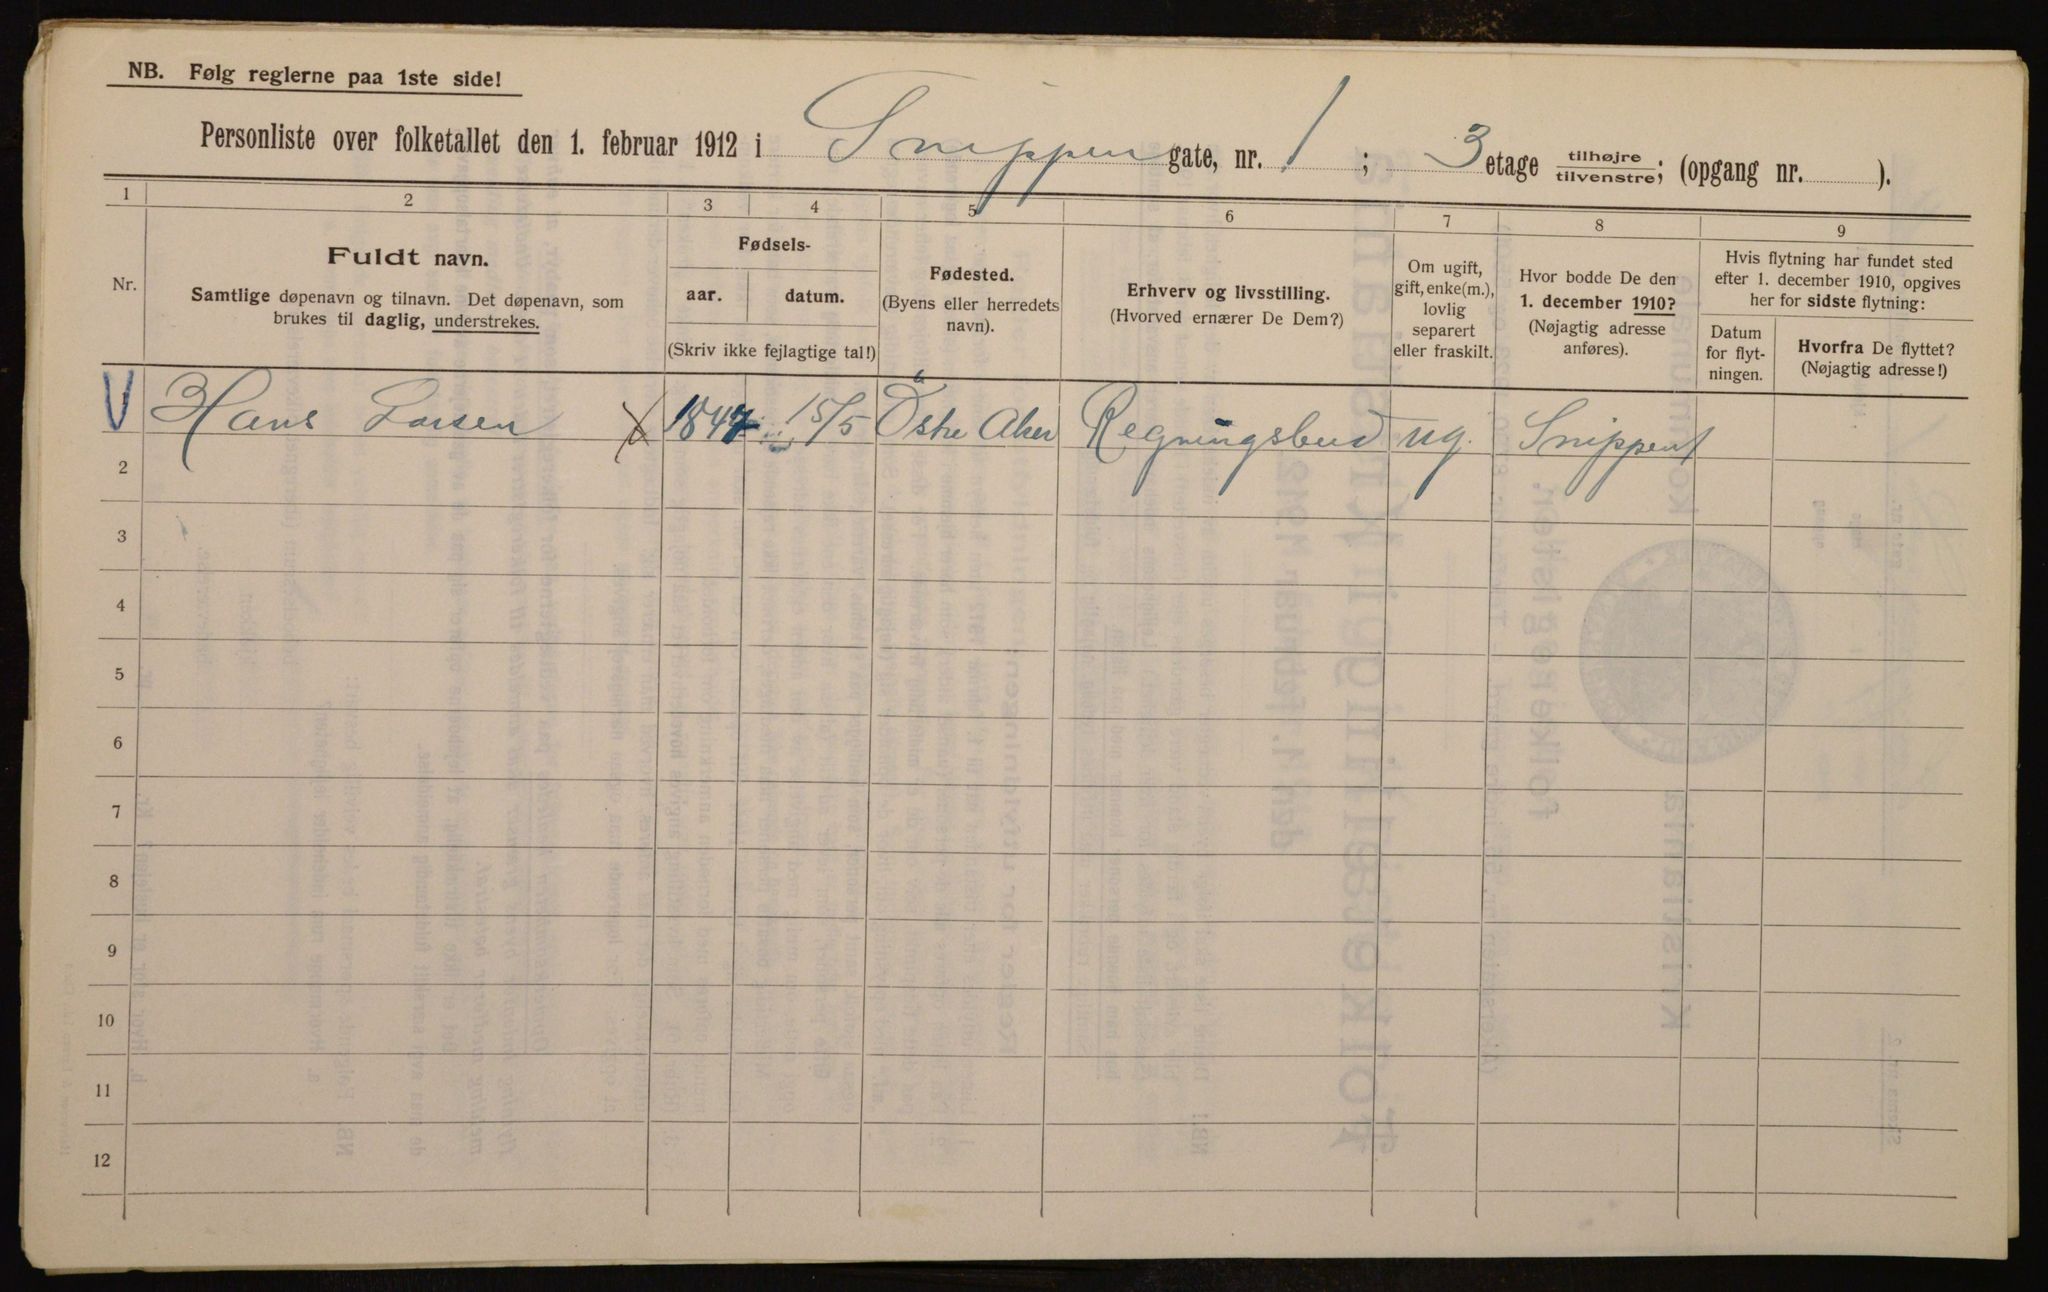 NB. Følg reglerne paa 1ste side!
Personliste over folketallet den 1. februar 1912 i Snippen gate, nr. 1 ; 3 etage tilhøjre tilvenstre; (opgang nr. ).
1 2 3 4 5 6 7 8 9
Nr.
Fuldt navn.
Samtlige døpenavn og tilnavn. Det døpenavn, som
brukes til daglig, understrekes.
Fødsels-
aar. datum.
(Skriv ikke fejlagtige tal!)
Fødested.
(Byens eller herredets
navn).
Erhverv og livsstilling.
(Hvorved ernærer De Dem?)
Om ugift,
gift, enke(m.),
lovlig
separert
eller fraskilt.
Hvor bodde De den
1. december 1910?
(Nøjagtig adresse
anføres).
Hvis flytning har fundet sted
efter 1. december 1910, opgives
her for sidste flytning:
Datum
for flyt-
ningen.
Hvorfra De flyttet?
(Nøjagtig adresse!)
Hans Larsen 1847 15/5 Östre Aker Regningsbud ug. Snippen 1
2
3
4
5
6
7
8
9
10
11
12